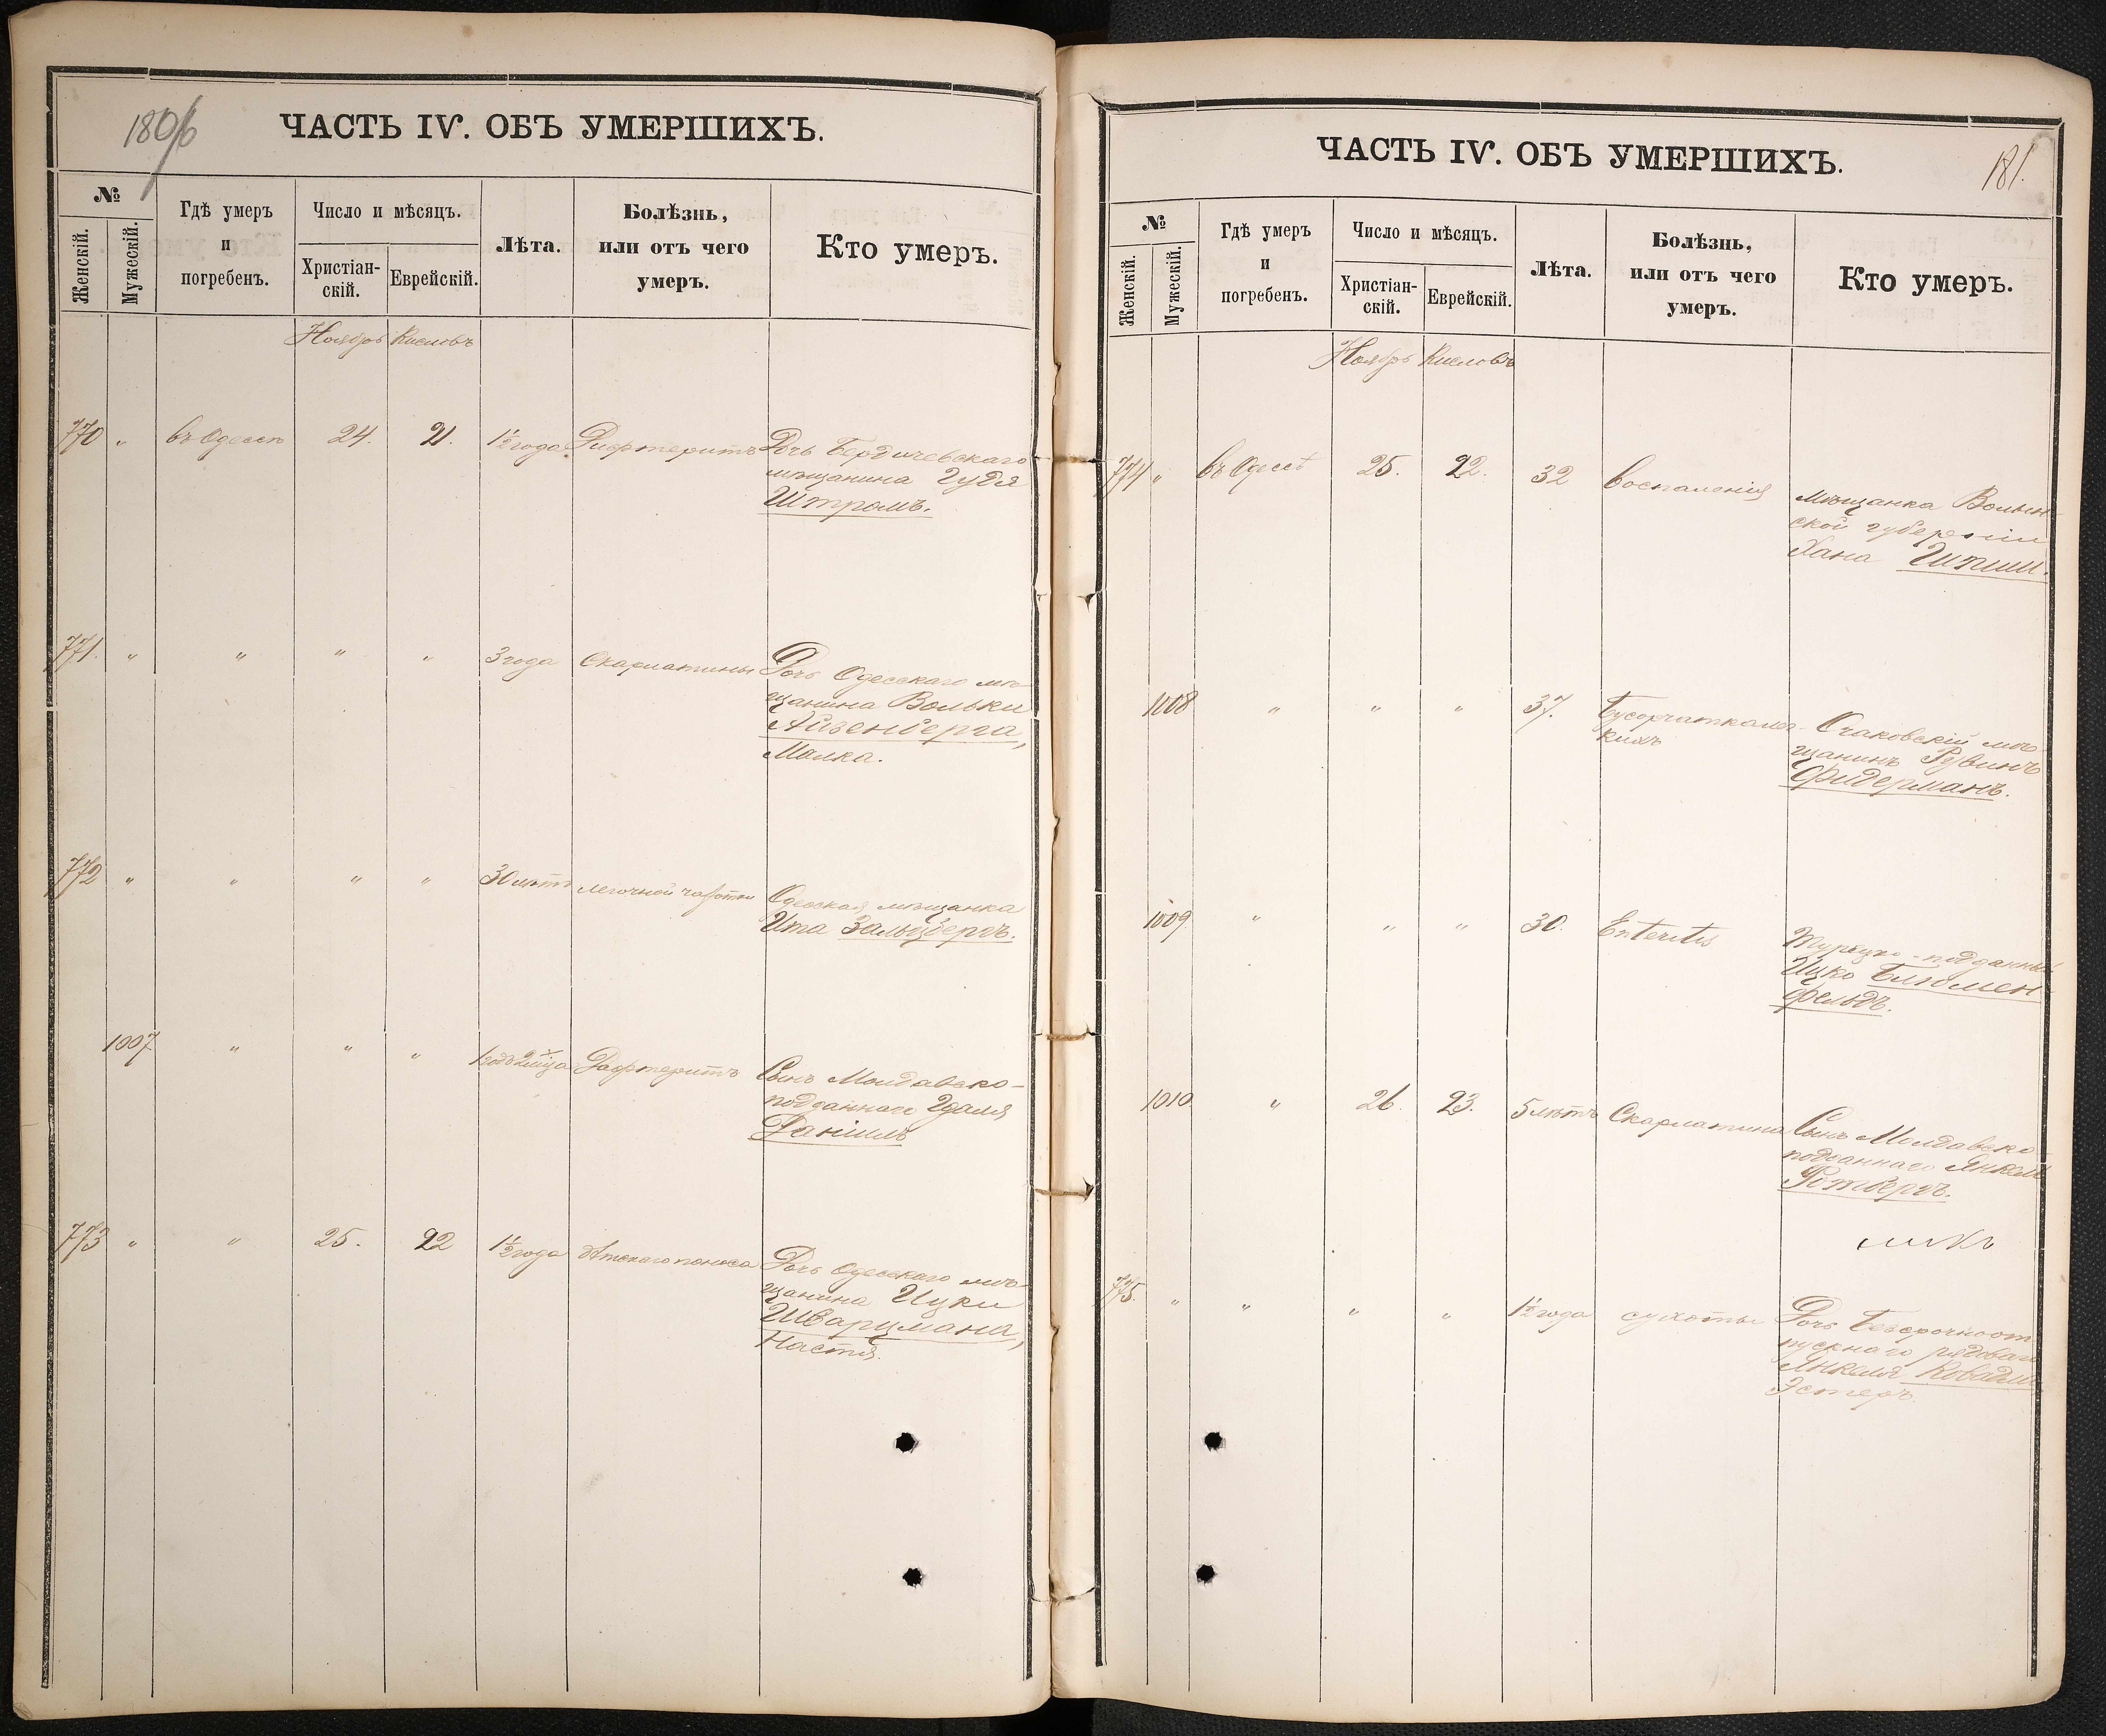 180/б
ЧАСТЬ IV. ОБЪ УМЕРШИХЪ.
№
Женскій.
Мужескій.
Гдѣ умеръ
и
погребенъ.
Число и мѣсяцъ.
Христіан-
скій.
Еврейскій.
Лѣта.
Болѣзнь,
или отъ чего
умеръ.
Кто умеръ.
Ноябрь Кислевъ
770 " въ Одессѣ 24. 21. 1½ года Дифтеритъ Дочь Бердичевскаго
мѣщанина Гудя
Штромъ.
771. " " " " 3 года Скарлатины Дочь Одесскаго мѣ-
щанина Вольки
Айзенберга,
Малка.
772 " " " " 30 лѣтъ легочной чахотки Одесская мѣщанка
Ита Зальцбергъ.
1007 " " " Дифтеритъ Сынъ Молдавско-
подданнаго Гдаля
Даніилъ
773 " " 25. 22 1½ года дѣтскаго поноса Дочь Одесскаго мѣ-
щанина Ицки
Шварцмана,
Настя.
ЧАСТЬ IV. ОБЪ УМЕРШИХЪ.
181.
№
Женскій.
Мужескій.
Гдѣ умеръ
и
погребенъ.
Число и мѣсяцъ.
Христіан-
скій.
Еврейскій.
Лѣта.
Болѣзнь,
или отъ чего
умеръ.
Кто умеръ.
Ноябрь Кислевъ
774 " въ Одессѣ 25. 22. 32 воспаленія Мѣщанка Волын-
ской губерніи
Хана
1008 " " " 37. Бугорчатка лег-
кихъ
Очаковскій мѣ-
щанинъ Рувинъ
Фидерманъ.
1009 " " " 30. Enteritis Турецко-подданный
Ицко Блюмен-
фельдъ.
1010 " 26. 23. 5 лѣтъ Скарлатина Сынъ Молдавско
подданнаго Янкель
Ротбергъ.
775. " " " " 1½ года сухоты Дочь Безсрочноот-
пускнаго рядоваго
Янкеля
Эстеръ.